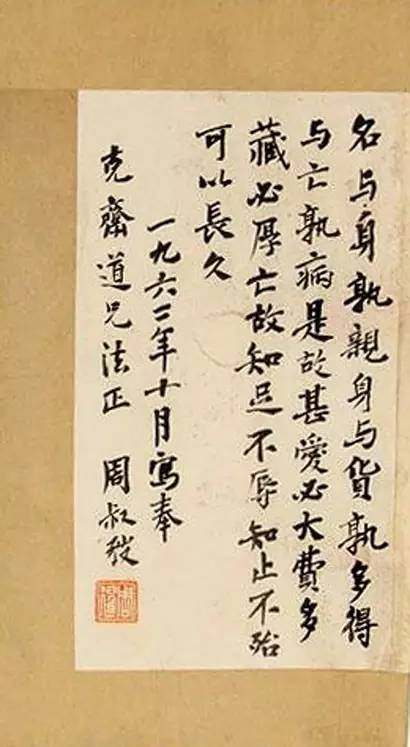 名与身孰親身与货孰多得
与亡孰病是故甚愛必大費多
藏必厚亡故知足不辱知止不殆
可以長久
一九六二年十月寫奉
克齋道兄法正 周叔弢